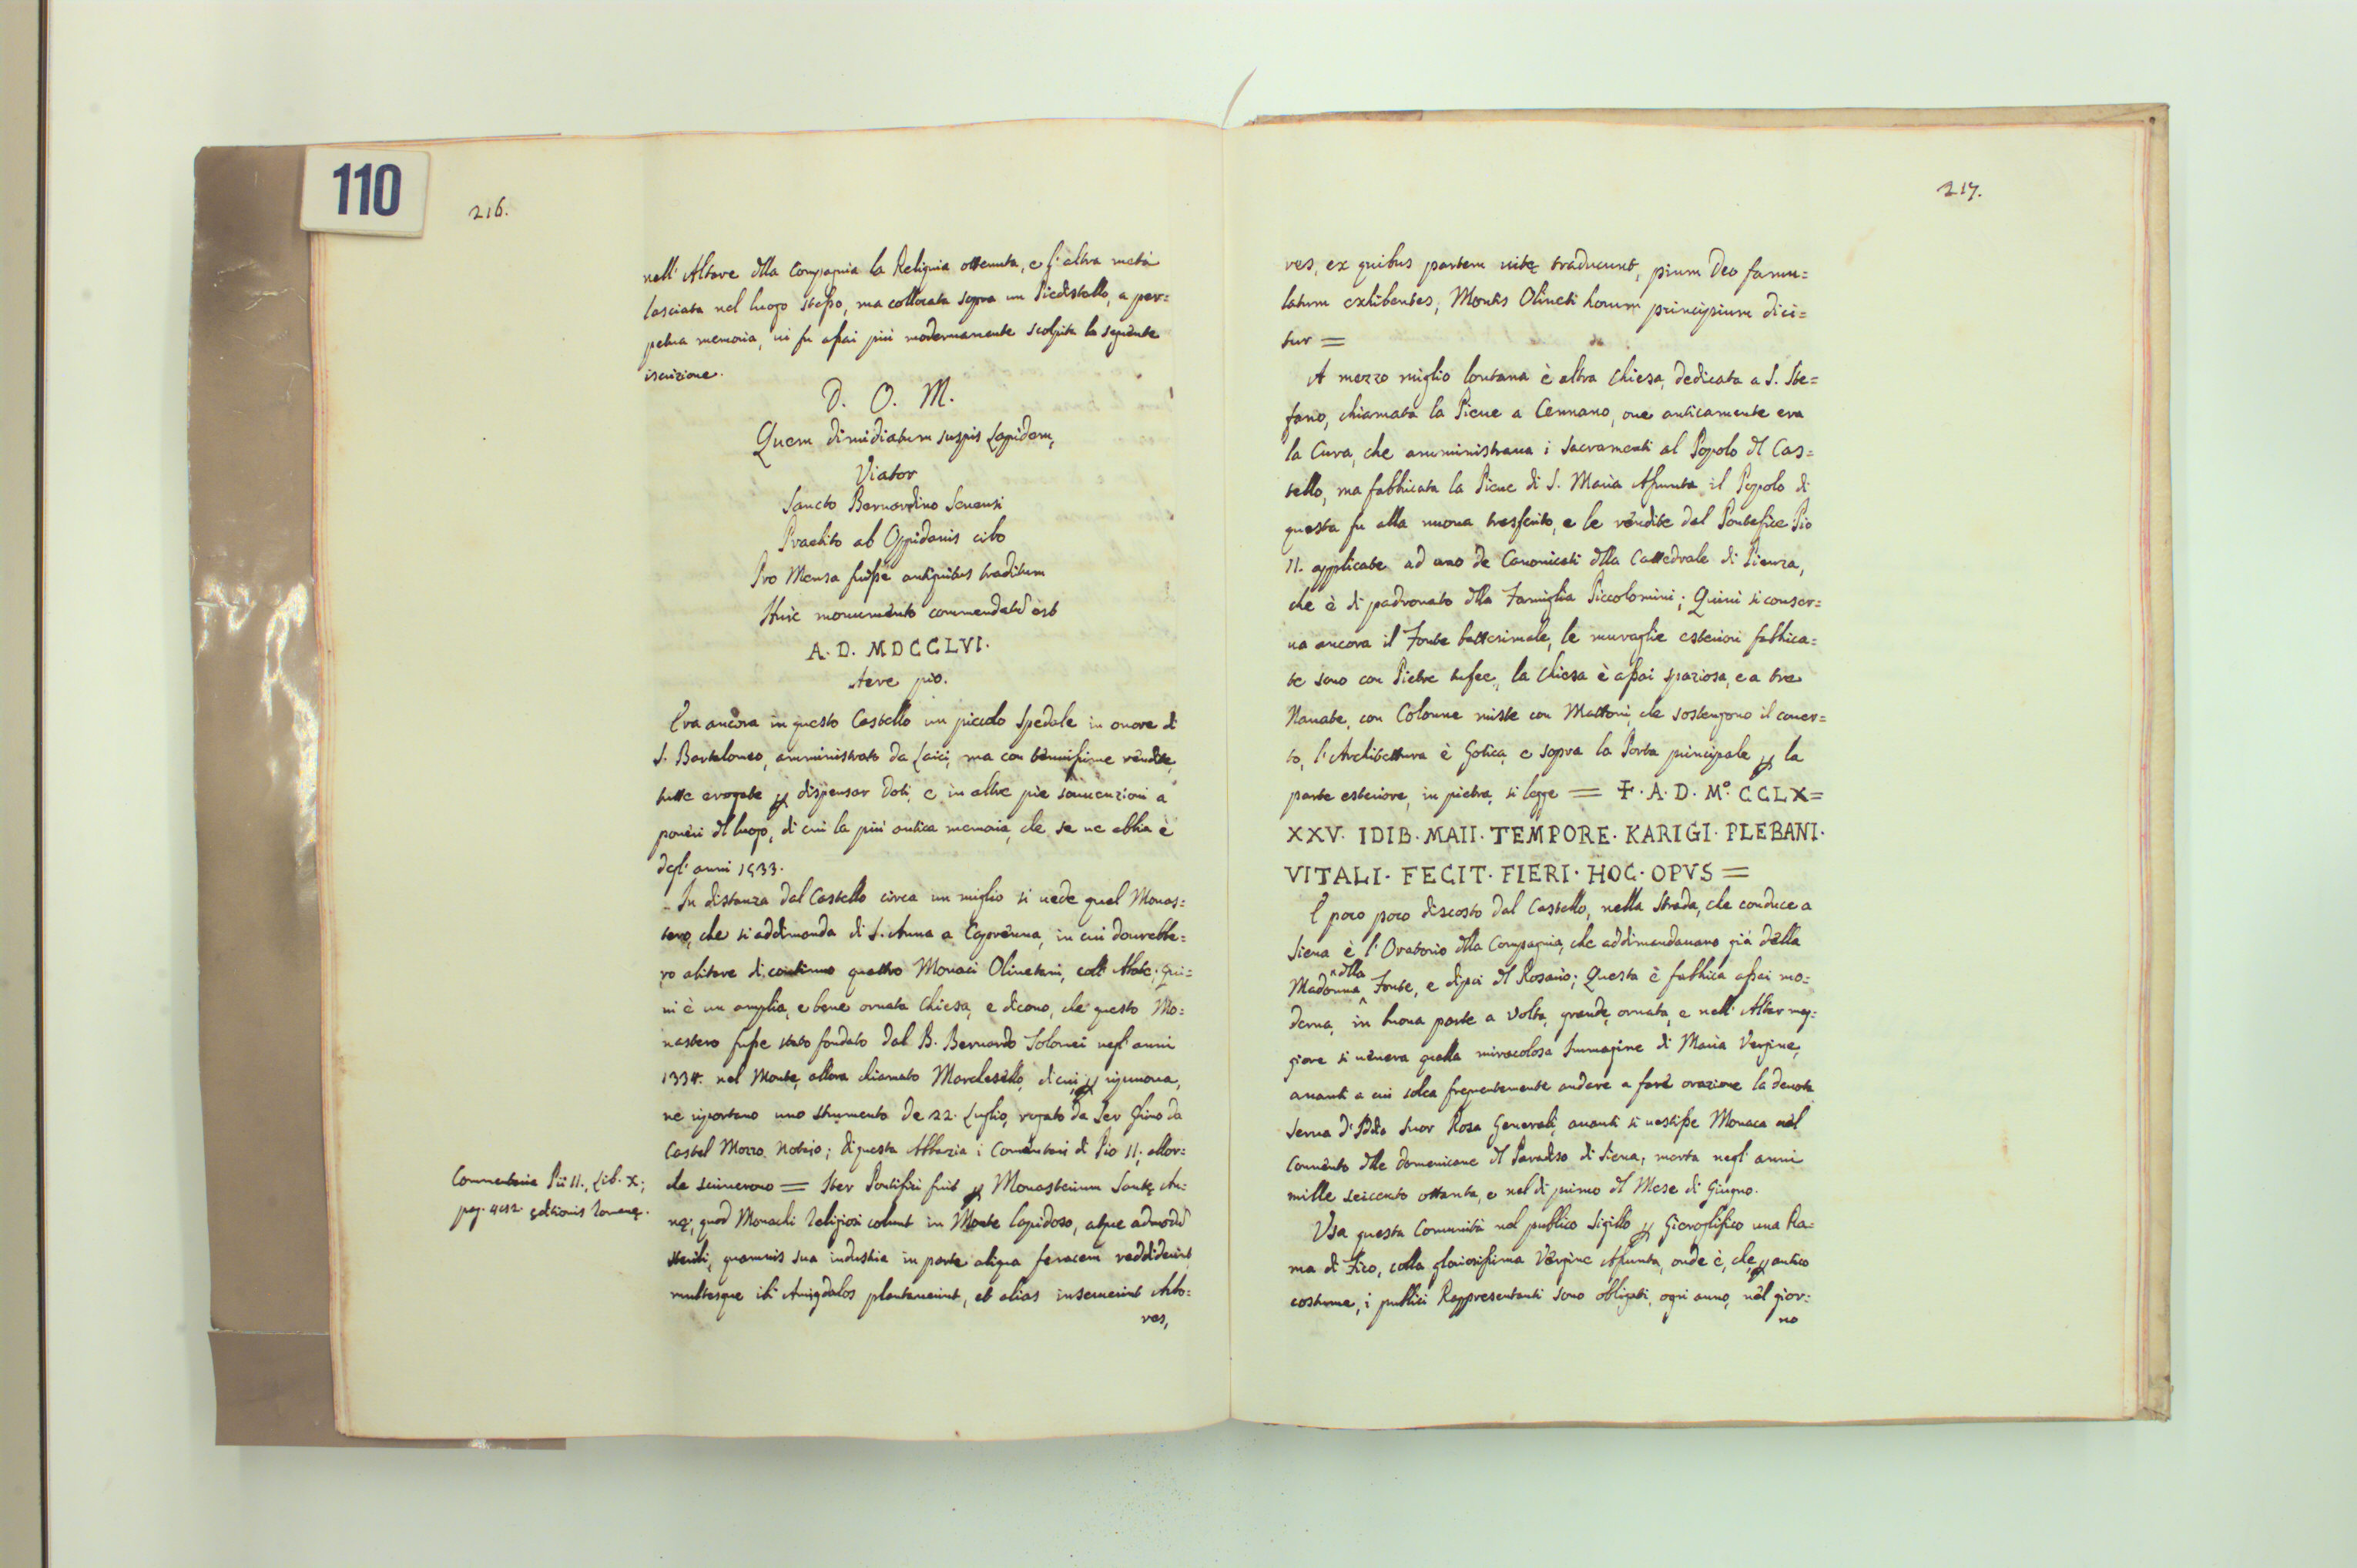 110
216.
nell' Altare dlla Compagnia la Reliquia ottenuta, e l' altra metà
lasciata nel luogo stesso, ma collocata sopra un Piedistallo, a per=
petua memoria, ui fu assai più modernamente scolpita la seguente
iscrizione.
D. O. M.
Quem dimidiatum suspis Lapidem,
Viator
Sancto Bernardino Senensi
Praebito ab Oppidanis cibo
Pro Mensa fuisse antiquitus traditum
Huic monumento commendatũ est
A. D. MDCCLVI.
Aere pio.
Era ancora in questo Castello un piccolo Spedale in onore di
S. Bartolomeo, amministrato da Laici, ma con tenuissime rendite,
tutte erogate ꝑ dispensar Doti, e in altre pie souuenzioni a
poueri dl luogo, di cui la più antica memoria, che se ne abbia è
degl' anni 1533.
In distanza dal Castello circa un miglio si uede quel Monas=
tero, che si addimanda di S. Anna a Caprenna, in cui dourebbe=
ro abitare di continuo quattro Monaci Oliuetani, coll' Abate; qui=
ui è un amplia, e bene ornata Chiesa, e dicono, che questo Mo=
nastero fusse stato fondato dal B. Bernardo Tolomei negl' anni
1334. nel Monte, allora chiamato Marchesello, di cui, ꝑ riprououa,
ne riportano uno strumento de 22. Luglio, rogato da Ser Ghino da
Castel Mozzo Notajo; di questa Abbazia i Comentari di Pio II. allor=
Commentaria Pii II., Lib. X;
che scriuerono = Iter Pontifici fuit ꝑ Monasterium Sanctę An=
pag. 482. editionis Romanę.
nę, quod Monachi Religiosi colunt in Monte lapidoso, atque admodũ
sterili, quamuis sua industria in parte aliqua feracem reddiderint,
multasque ibi Amigdalos plantauerint, et alias inseruerint Arbo=
res,
217.
res, ex quibus partem uitę traducunt, pium Deo famu=
latum exhibentes, Montis Oliueti horum principium dici=
tur =
A mezzo miglio lontana è altra Chiesa, dedicata a S. Ste=
fano, chiamata la Pieue a Cennano, oue anticamente era
la Cura, che amministraua i Sacramenti al Popolo dl Cas=
tello, ma fabbricata la Pieue di S. Maria Assunta il Popolo di
questa fu alla nuoua trasferito, e le rendite dal Pontefice Pio
II. applicate ad uno de Canonicati dlla Cattedrale di Pienza,
che è di padronato dlla Famiglia Piccolomini; Quiui si conser=
ua ancora il Fonte battesimale, le muraglie esteriori fabbrica=
te sono con Pietre tufee, la Chiesa è assai spaziosa, e a tre
Nauate, con Colonne miste con Mattoni, che sostengono il couer=
to, l' Architettura è Gotica, e sopra la Porta principale ꝑ la
parte esteriore, in pietra, si legge = ☩. A. D. Mº. CCLX=
XXV. IDIB. MAII. TEMPORE. KARIGI. PLEBANI.
VITALI. FECIT. FIERI. HOC. OPVS =
E poco poco discosto dal Castello, nella Strada, che conduce a
Siena è l' Oratorio dlla Compagnia, che addimandauano già della
Madonna ^dlla Fonte, e dipoi dl Rosario; Questa è fabbrica assai mo=
derna, in buona parte a volta, grande, ornata, e nell' Altar mag=
giore si uenera quella miracolosa Immagine di Maria Vergine,
auanti a cui solea frequentemente andare a fare orazione la deuota
Serua d' Iddio Suor Rosa Generali, auanti si uestisse Monaca nel
Conuento dlle domenicane dl Paradiso di Siena, morta negl' anni
mille seicento ottanta, e nel dì primo dl Mese di Giugno.
Vsa questa Comunità nel publico Sigillo ꝑ Gieroglifico una Ra=
ma di Fico, colla gloriosissima Vergine Assunta, onde è, che, ꝑ antico
costume, i publici Rappresentanti sono obligati, ogni anno, nel gior=
no